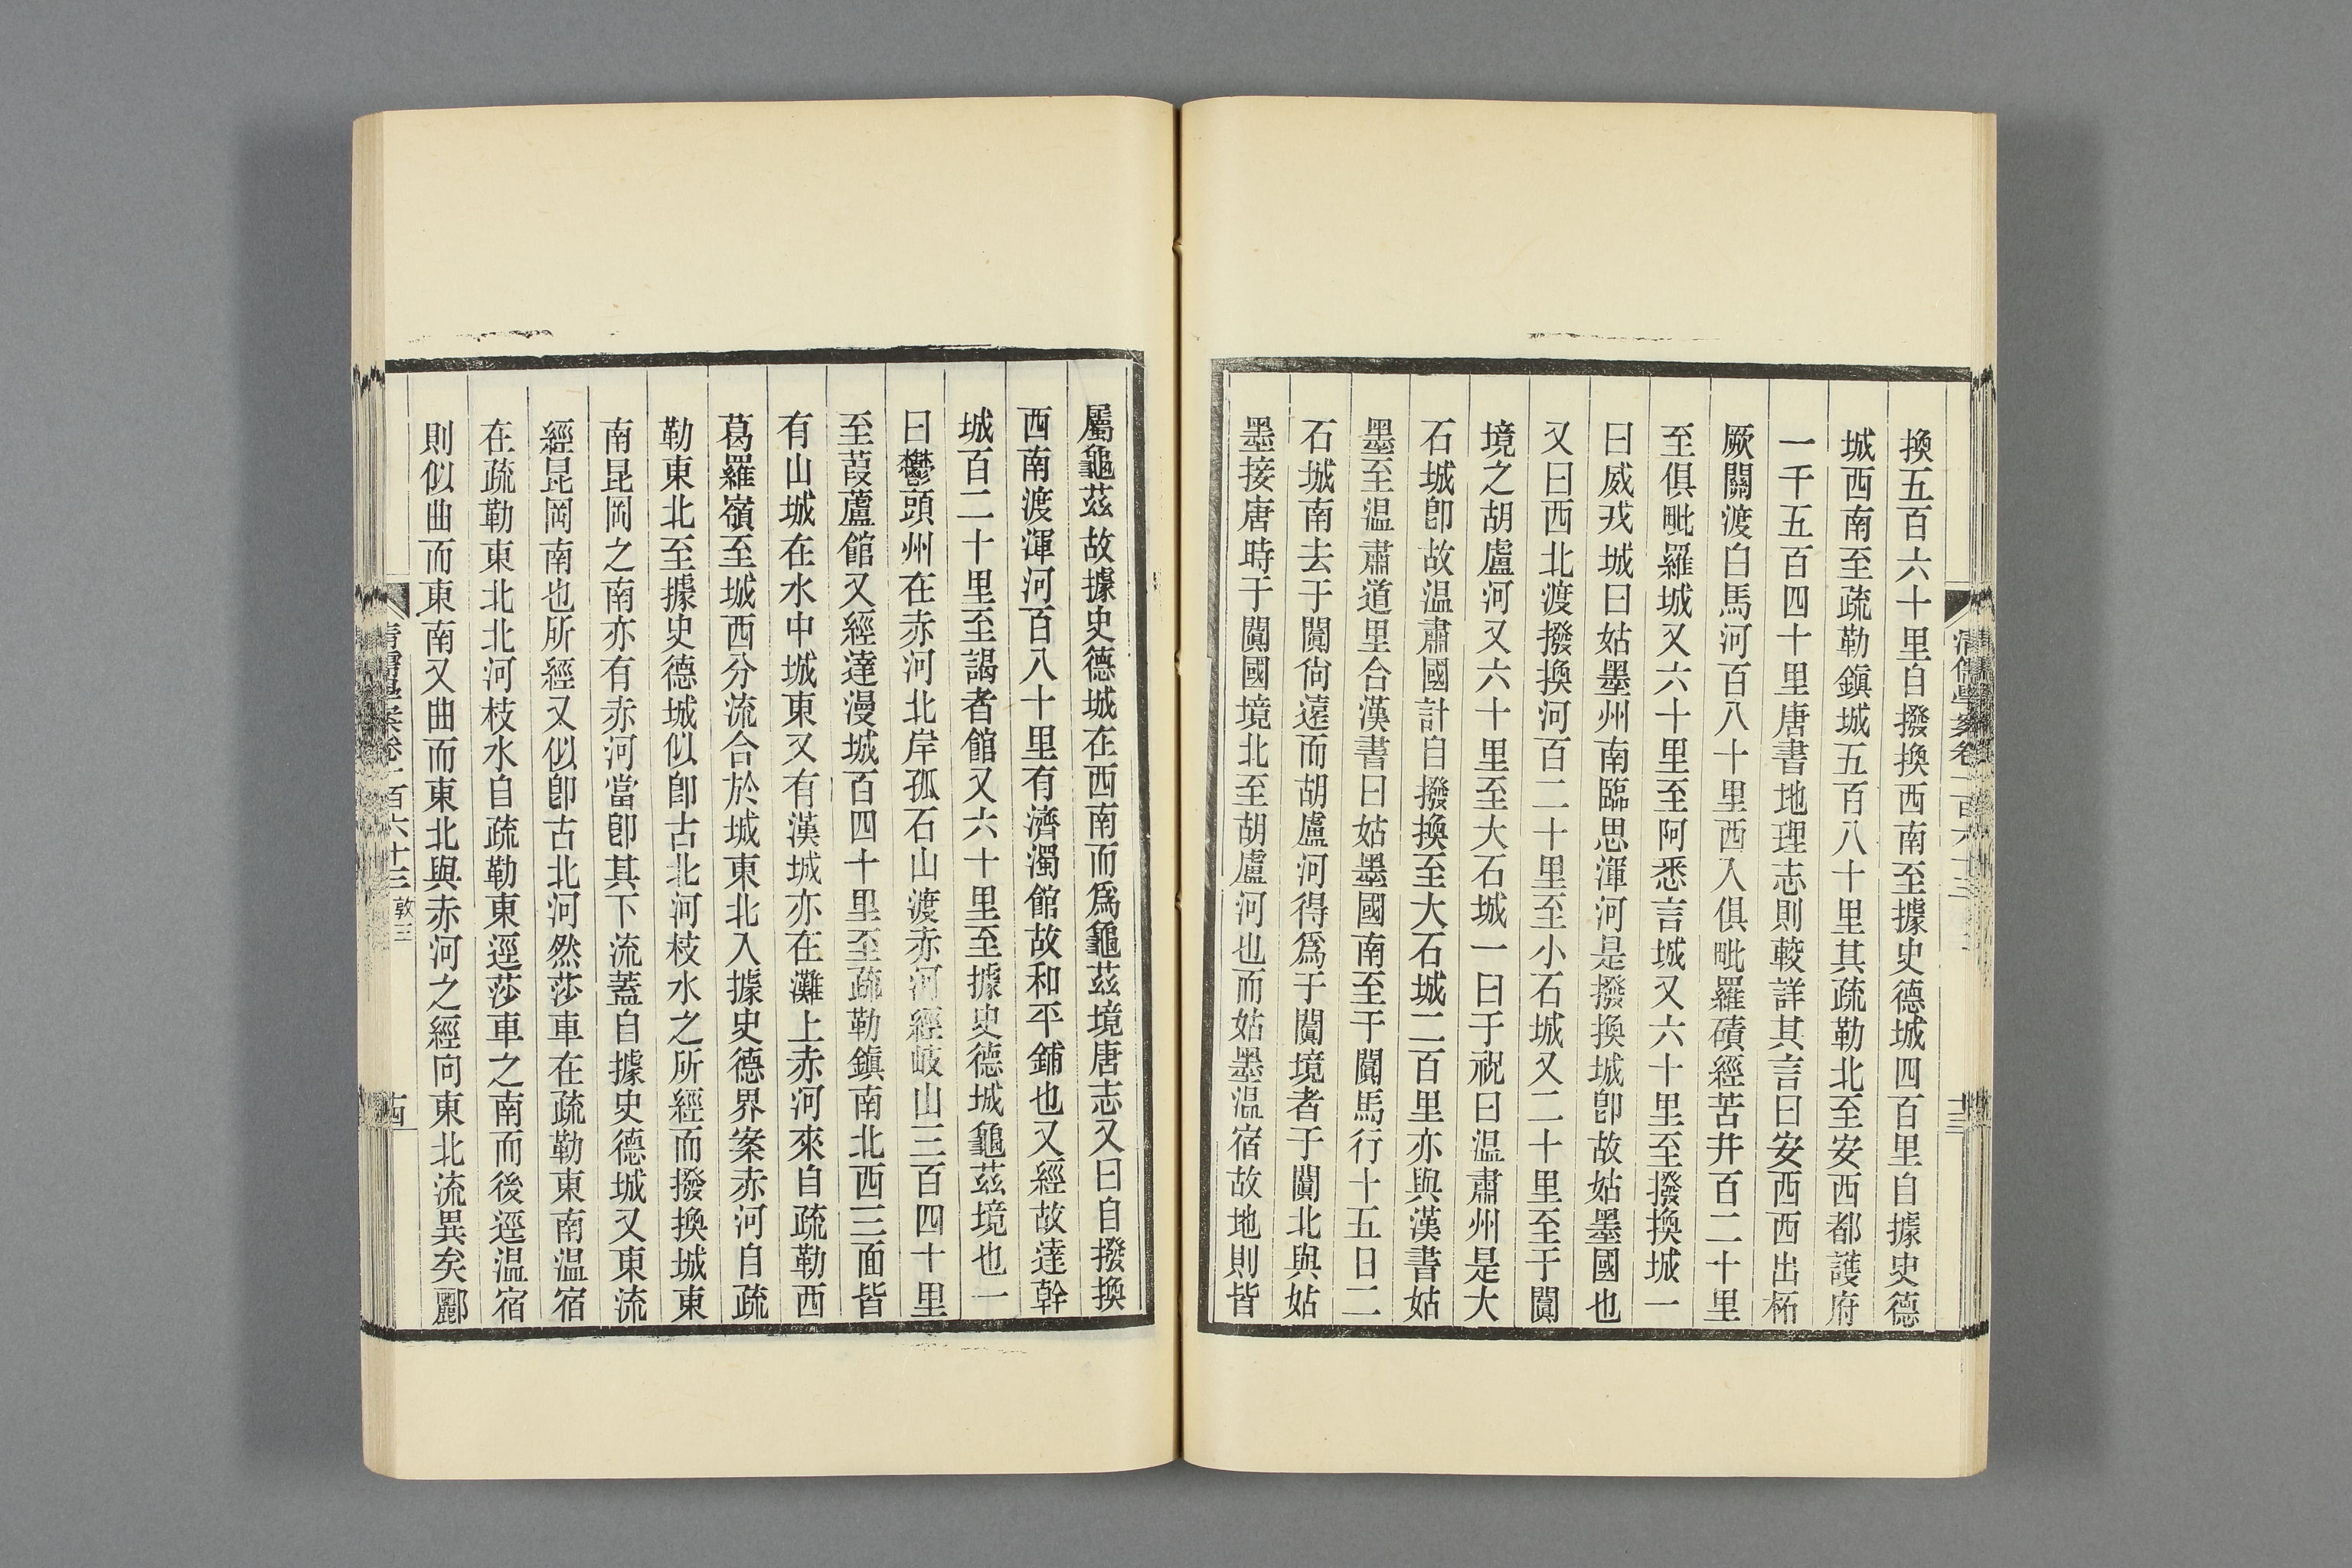 換五百六十里自撥換西南至據史德城四百里自據史德
城西南至疏勒鎭城五百八十里其疏勒北至安西都護府
一千五百四十里唐書地理志則較詳其言曰安西西出柘
厥關渡白馬河百八十里西入俱毗羅磧經苦井百二十里
至俱毗羅城又六十里至阿悉言城又六十里至撥換城一
曰威戎城曰姑墨州南臨思渾河是撥換城卽故姑墨國也
又曰西北渡撥換河百二十里至小石城又二十里至于闐
境之胡盧河又六十里至大石城一曰于祝曰温肅州是大
石城卽故温肅國計自撥換至大石城二百里亦與漢書姑
墨至温肅道里合漢書曰姑墨國南至于闐馬行十五日二
石城南去于闐尙遠而胡盧河得爲于闐境者于闐北與姑
墨接唐時于闐國境北至胡盧河也而姑墨温宿故地則皆
清儒學案卷一百六十三
十三
屬龜茲故據史德城在西南而爲龜茲境唐志又曰自撥換
西南渡渾河百八十里有濟濁館故和平鋪也又經故達幹
城百二十里至謁者館又六十里至據史德城龜茲境也一
曰鬱頭州在赤河北岸孤石山渡赤河經岐山三百四十里
至葭蘆館又經達漫城百四十里至疏勒鎭南北西三面皆
有山城在水中城東又有漢城亦在灘上赤河來自疏勒西
葛羅嶺至城西分流合於城東北入據史德界案赤河自疏
勒東北至據史德城似卽古北河枝水之所經而撥換城東
南昆岡之南亦有赤河當卽其下流蓋自據史德城又東流
經昆岡南也所經又似卽古北河然莎車在疏勒東南温宿
在疏勒東北北河枝水自疏勒東逕莎車之南而後逕温宿
則似曲而東南又曲而東北與赤河之經向東北流異矣酈
清儒學案卷一百六十三 敦三
十四